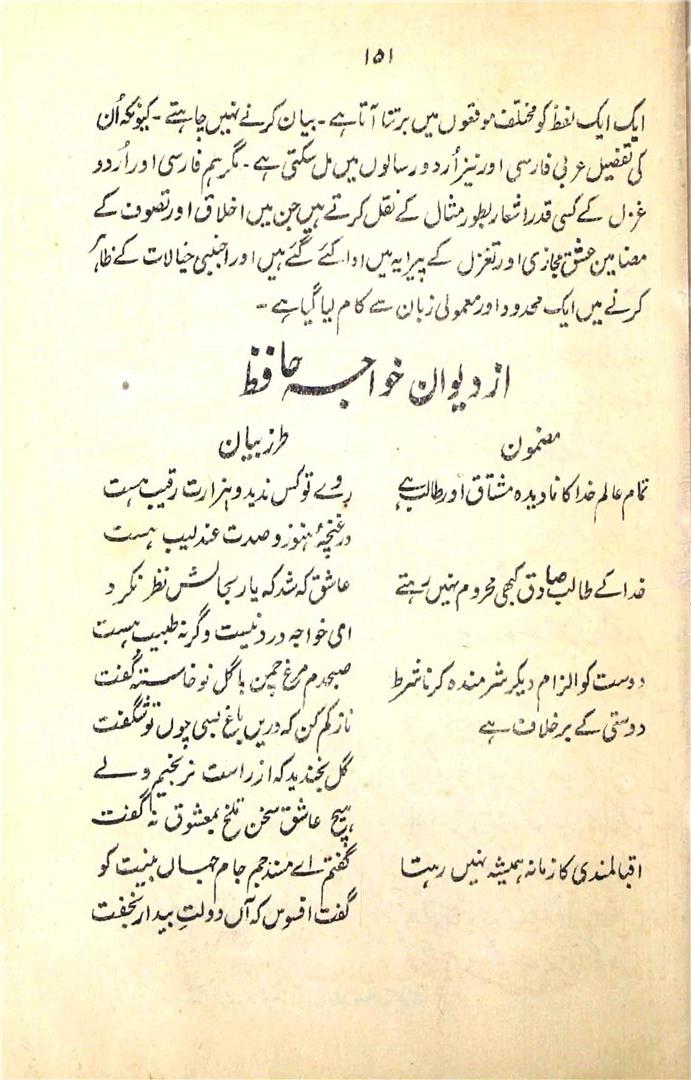 ۱۵۱
ایک ایک لفظ کو مختلف موقعوں میں برتنا آتا ہے ۔ بیان کرنے نہیں چاہتے ۔ کیونکہ اُن
کی تفصیل عربی فارسی اور نیز اُردو رسالوں میں مل سکتی ہے ۔ مگر ہم فارسی اور اُردو
غزل کے کسی قدر اشعار بطور مثال کے نقل کرتے ہیں جن میں اخلاق اور تصوف کے
مضامین عشق مجازی اور تغزل کے پیرایہ میں ادا کئے گئے ہیں اور اجنبی خیالات کے ظاہر
کرنے میں ایک محدود اور معمولی زبان سے کام لیا گیا ہے ۔
از دیوان خواجہ حافظ
مضمون طرز بیان
تمام عالم خدا کا نادیدہ مشتاق اور طالب ہے روے تو کس ندید و ہزارت رقیب ہست
در غنچۂ ہنوز و صدت عندلیب ہست
خدا کے طالب صادق کبھی محروم نہیں رہتے عاشق کہ شد کہ یار بحالش نظر نکرد
ای خواجہ درد نیست وگرنہ طبیب ہست
دوست کو الزام دیکر شرمندہ کرنا شرط صبحدم مرغ چمن با گل نو خاستہ گفت
دوستی کے برخلاف ہے ناز کم کن کہ دریں باغ بسی چوں تو شگفت
گل بخندید کہ از راست نرنجیم ولے
ہیچ عاشق سخن تلخ بمعشوق نہ گفت
اقبالمندی کا زمانہ ہمیشہ نہیں رہتا گفتم اے مسند جم جام جہاں بینت کو
گفت افسوس کہ آں دولتِ بیدار نخفت